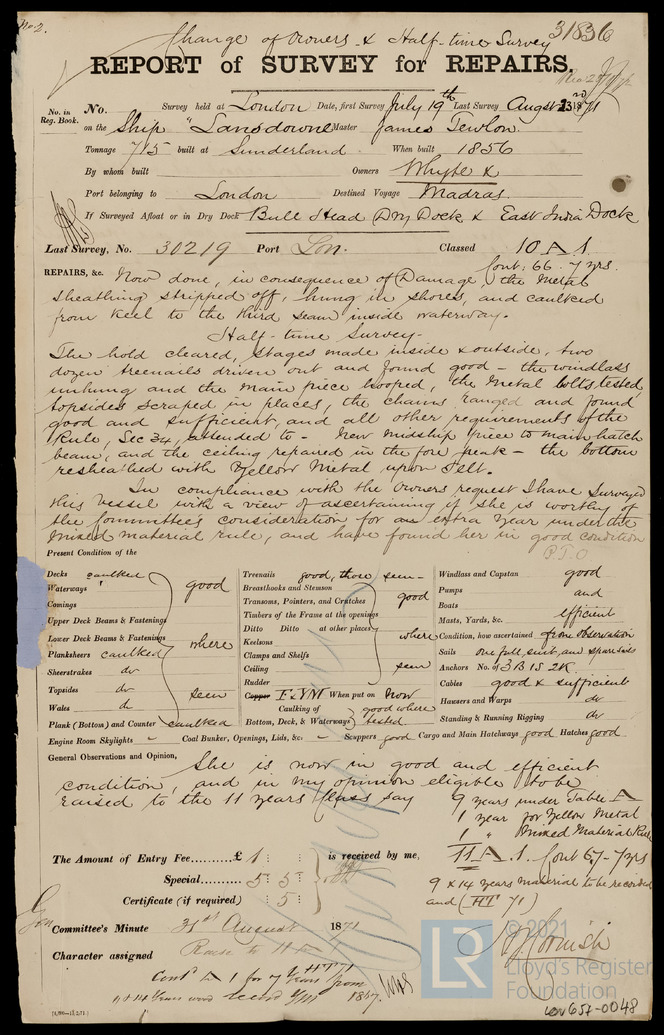 No. 2.
31836
Change of Owners & Half-time Survey
REPORT of SURVEY for REPAIRS.
No. in Reg. Book.
No. Survey held at London Date, first Survey July 19th Last Survey Augst 23rd 1871
on the Ship "Lansdowne Master James Tewlon
Tonnage 715 built at Sunderland When built 1856
By whom built Owners Whyte &
Port belonging to London Destined Voyage Madras
If Surveyed Afloat or in Dry Dock Bull Head Dry Dock & East India Dock
Last Survey, No. 30219 Port Lon. Classed 10 A 1
Cont: 66 - 7 yrs.
REPAIRS, &c. Now done, in consequence of Damage, the Metal
sheathing stripped off, hung in shores, and caulked
from Keel to the third seam inside waterway.
Half-time Survey-
The hold cleared, stages made inside & outside, two
dozen treenails driven out and found good - the windlass
unhung and the main piece hooped, the Metal bolts tested,
topsides scraped in places, the chains ranged and found
good and sufficient, and all other requirements of the
Rule, Sec 34, attended to - New Midship piece to main hatch
beam, and the ceiling repaired in the fore peak - the bottom
resheathed with Yellow Metal upon Felt.
In compliance with the Owners request I have surveyed
this vessel with a view of ascertaining if she is worthy of
the Committee's consideration for an extra Year under the
Mixed material rule, and have found her in good condition
P.T.O
Present Condition of the
Decks caulked
Waterways
Comings
Upper Deck Beams & Fastenings
Lower Deck Beams & Fastenings
Planksheers caulked
Sheerstrakes do
Topsides do
Wales do
Plank (Bottom) and Counter caulked
good
where
seen
Treenails good, those seen -
Breasthooks and Stemson
Transoms, Pointers, and Crutches
Timbers of the Frame at the openings
Ditto Ditto at other places
Keelsons
Clamps and Shelfs
Ceiling
Rudder
good
where
seen
Copper F & YM When put on Now
Caulking of Bottom, Deck, & Waterways good where tested
Windlass and Capstan good
Pumps and
Boats
Masts, Yards, &c. efficient
Condition, how ascertained from observation
Sails one full suit, and spare sails
Anchors No. of 3B 1S 2K
Cables good & sufficient
Hawsers and Warps do
Standing & Running Rigging do
Engine Room Skylights - Coal Bunker, Openings, Lids, &c. - Scuppers good Cargo and Main Hatchways good Hatches good
General Observations and Opinion, She is now in good and efficient
condition, and in my opinion eligible to be
raised to the 11 years Class say 9 years under Table A
1 year for Yellow Metal
1 " Mixed Material Rule
11 A 1. Cont 67 - 7 yrs
9 & 14 years material to be recorded
and (HT 71)
The Amount of Entry Fee..........£ 1 : : is received by me,
Special.......... 5 : 5 :
Certificate (if required) : 5 :
Committee's Minute 31st August 1871
Character assigned Raise to 11 A 1
Contd A 1 for 7 Years from 1867
© 2021
LR
Lloyd's Register
Foundation
LON 657-0048